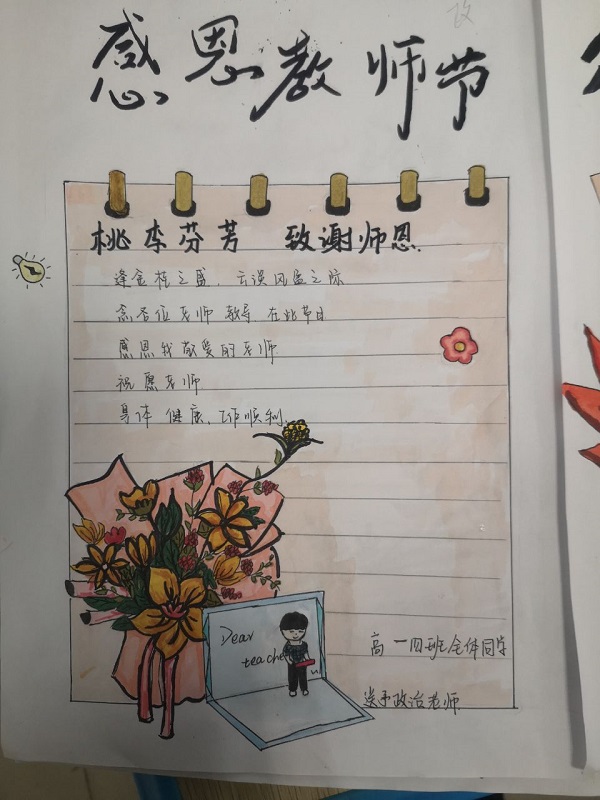 感恩教师节
桃李芬芳 致谢师恩
逢金桂之盛,云淡风盈之际
念各位老师 教导 在此节日
感恩我敬爱的老师
祝愿老师
身体 健康,工作顺利.
Dear
teacher
高一四班全体同学
送予政治老师